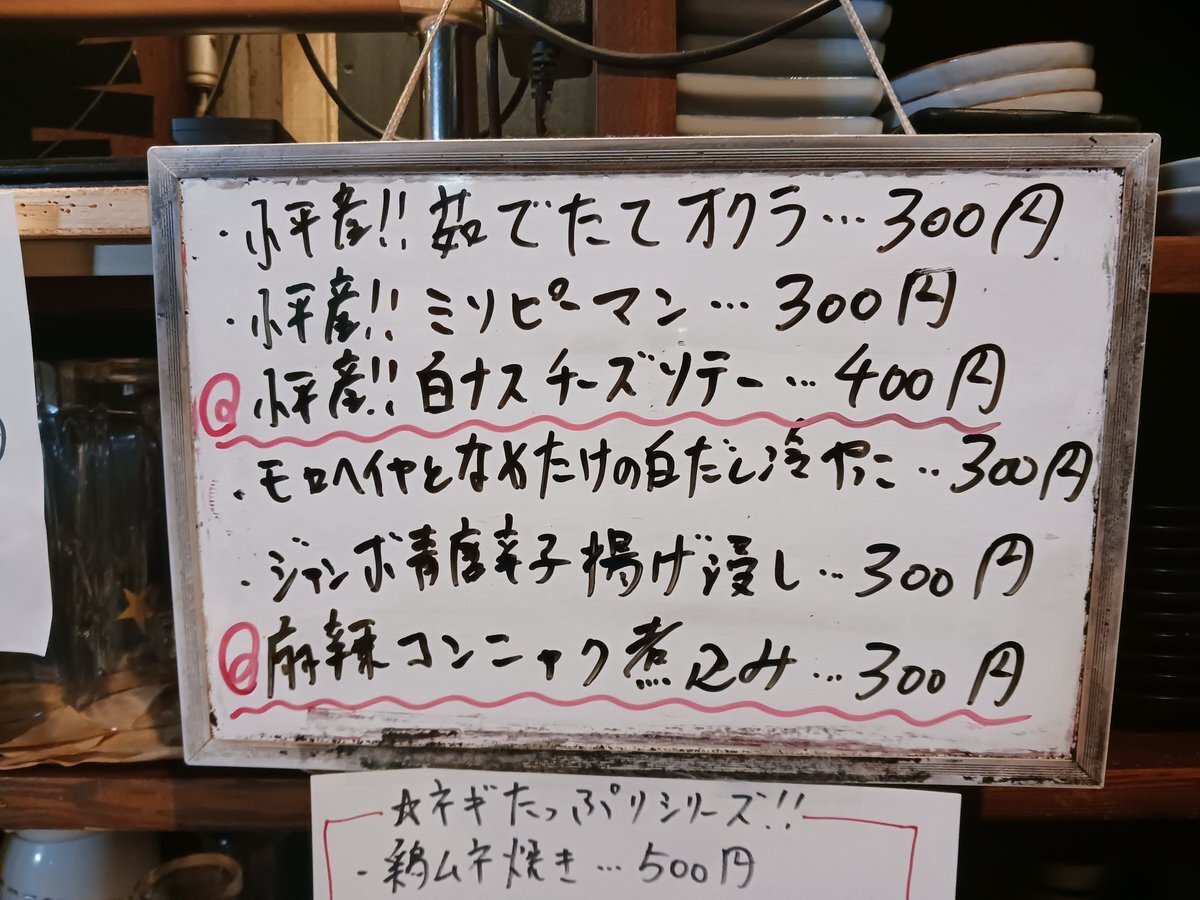 ・小平産!!茹でたてオクラ…300円
・小平産!!ミソピーマン…300円
小平産!!白ナスチーズソテー…400円
・モロヘイヤとなめたけの白だし冷やっこ…300円
・ジャンボ青唐辛子揚げ浸し…300円
麻辣コンニャク煮込み…300円
☆ネギたっぷりシリーズ!!
・鶏ムネ焼き…500円